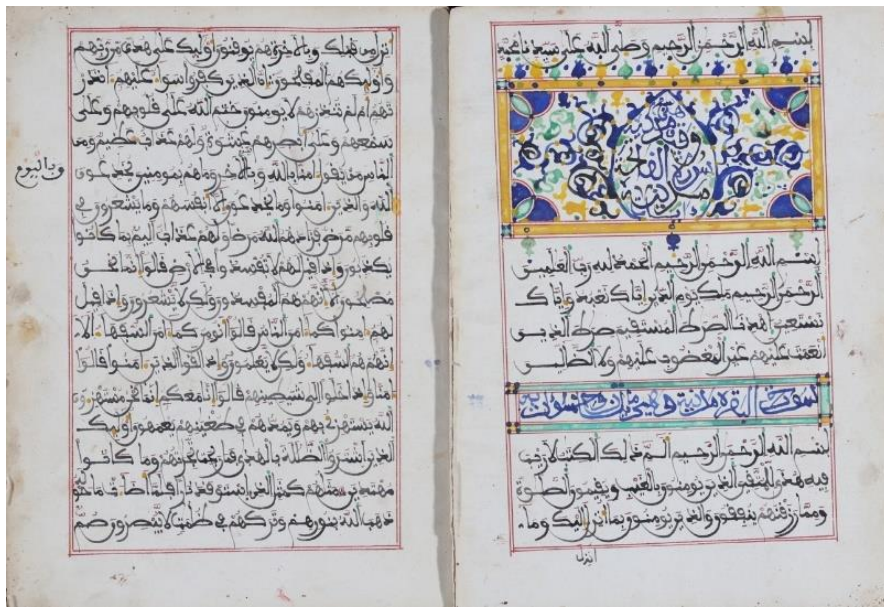 بسم الله الرحمن الرحيم وصلى الله على سيدنا محمد
سورة الفاتحة
بسم الله الرحمن الرحيم الحمد لله رب العلمين
الرحمن الرحيم ملك يوم الدين إياك نعبد وإياك
نستعين اهدنا الصرط المستقيم صرط الذين
انعمت عليهم غير المغضوب عليهم ولا الضالين
سورة البقرة مدنية وهي
بسم الله الرحمن الرحيم الم ذلك الكتب لا ريب
فيه هدى للمتقين الذين يومنون بالغيب ويقيمون الصلوة
ومما رزقنهم ينفقون والذين يومنون بما انزل اليك وما
انزل
انزل من قبلك وبالاخرة هم يوقنون اوليك على هدى من ربهم
واوليك هم المفلحون ان الذين كفروا سواء عليهم ءانذر
تهم ام لم تنذرهم لا يومنون ختم الله على قلوبهم وعلى
سمعهم وعلى ابصرهم غشوة ولهم عذاب عظيم ومن
الناس من يقول امنا بالله وبالاخر وما هم بمومنين يخدعون
وباليوم
الله والذين امنوا وما يخدعون الا انفسهم وما يشعرون في
قلوبهم مرض فزادهم الله مرضا ولهم عذاب اليم بما كانوا
يكذبون واذا قيل لهم لا تفسدوا في الارض قالوا انما نحن
مصلحون الا انهم هم المفسدون ولكن لا يشعرون واذا قيل
لهم امنوا كما امن الناس قالوا انومن كما امن السفهاء الا
انهم هم السفهاء ولكن لا يعلمون واذا لقوا الذين امنوا قالوا
امنا واذا خلوا الى شيطينهم قالوا انا معكم انما نحن مستهزون
الله يستهزئ بهم ويمدهم في طغينهم يعمهون اوليك
الذين اشتروا الضللة بالهدى فما ربحت تجرتهم وما كانوا
مهتدين مثلهم كمثل الذي استوقد نارا فلما اضاءت ما حوله
ذهب الله بنورهم وتركهم في ظلمت لا يبصرون صم